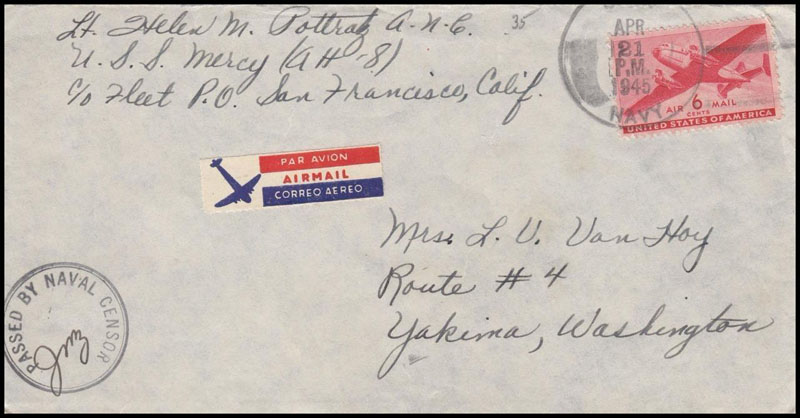 Lt. Helen M. Pottratz A.N.C.
35
U.S.S. Mercy (AH-8)
c/o Fleet P.O. San Francisco, Calif.
APR
21
P.M.
1945
NAVY
AIR 6 MAIL
CENTS
UNITED STATES OF AMERICA
PAR AVION
AIRMAIL
CORREO AEREO
Mrs. L. V. Van Hoy
Route #4
Yakima, Washington
PASSED BY NAVAL CENSOR